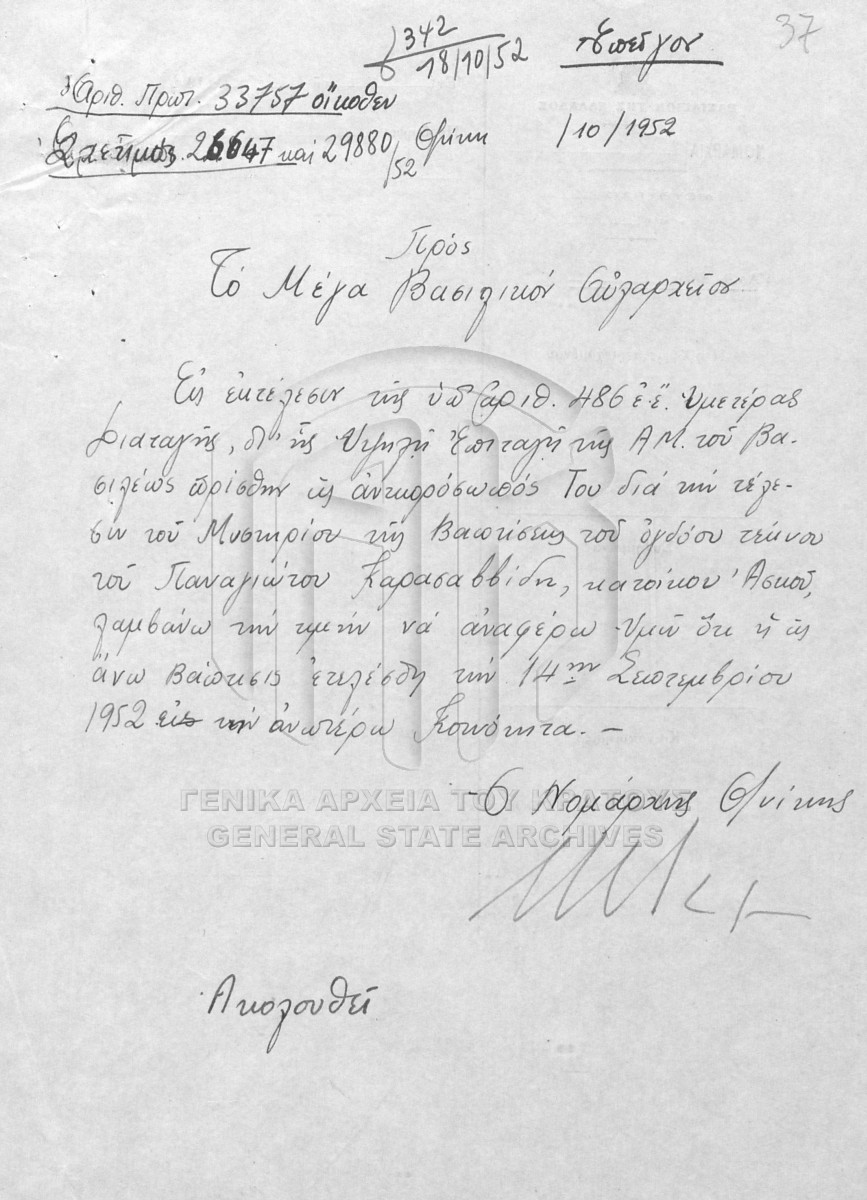 342
18/10/52
Ἐπεῖγον
37
Ἀριθ. Πρωτ. 33757 οἴκοθεν
Σχετικῶς 26647 καὶ 29880/52 Θ/νίκη /10/1952
Πρὸς
Τὸ Μέγα Βασιλικὸν Αὐλαρχεῖον
Εἰς ἐκτέλεσιν τῆς ὑπ' ἀριθ. 486 ἐ.ἔ. Ὑμετέρας
Διαταγῆς, δι' ἧς Ὑψηλῇ Ἐπιταγῇ τῆς Α.Μ. τοῦ Βα-
σιλέως ὡρίσθην ὡς ἀντιπρόσωπός Του διὰ τὴν τέλε-
σιν τοῦ Μυστηρίου τῆς Βαπτίσεως τοῦ ὀγδόου τέκνου
τοῦ Παναγιώτου Καρασαββίδη, κατοίκου Ἀσκοῦ,
λαμβάνω τὴν τιμὴν νὰ ἀναφέρω Ὑμῖν ὅτι ἡ ὡς
ἄνω Βάπτισις ἐτελέσθη τὴν 14ην Σεπτεμβρίου
1952 εἰς τὴν ἀνωτέρω Κοινότητα. —
Ὁ Νομάρχης Θ/νίκης
Ἀκολουθεῖ
ΓΕΝΙΚΑ ΑΡΧΕΙΑ ΤΟΥ ΚΡΑΤΟΥΣ
GENERAL STATE ARCHIVES